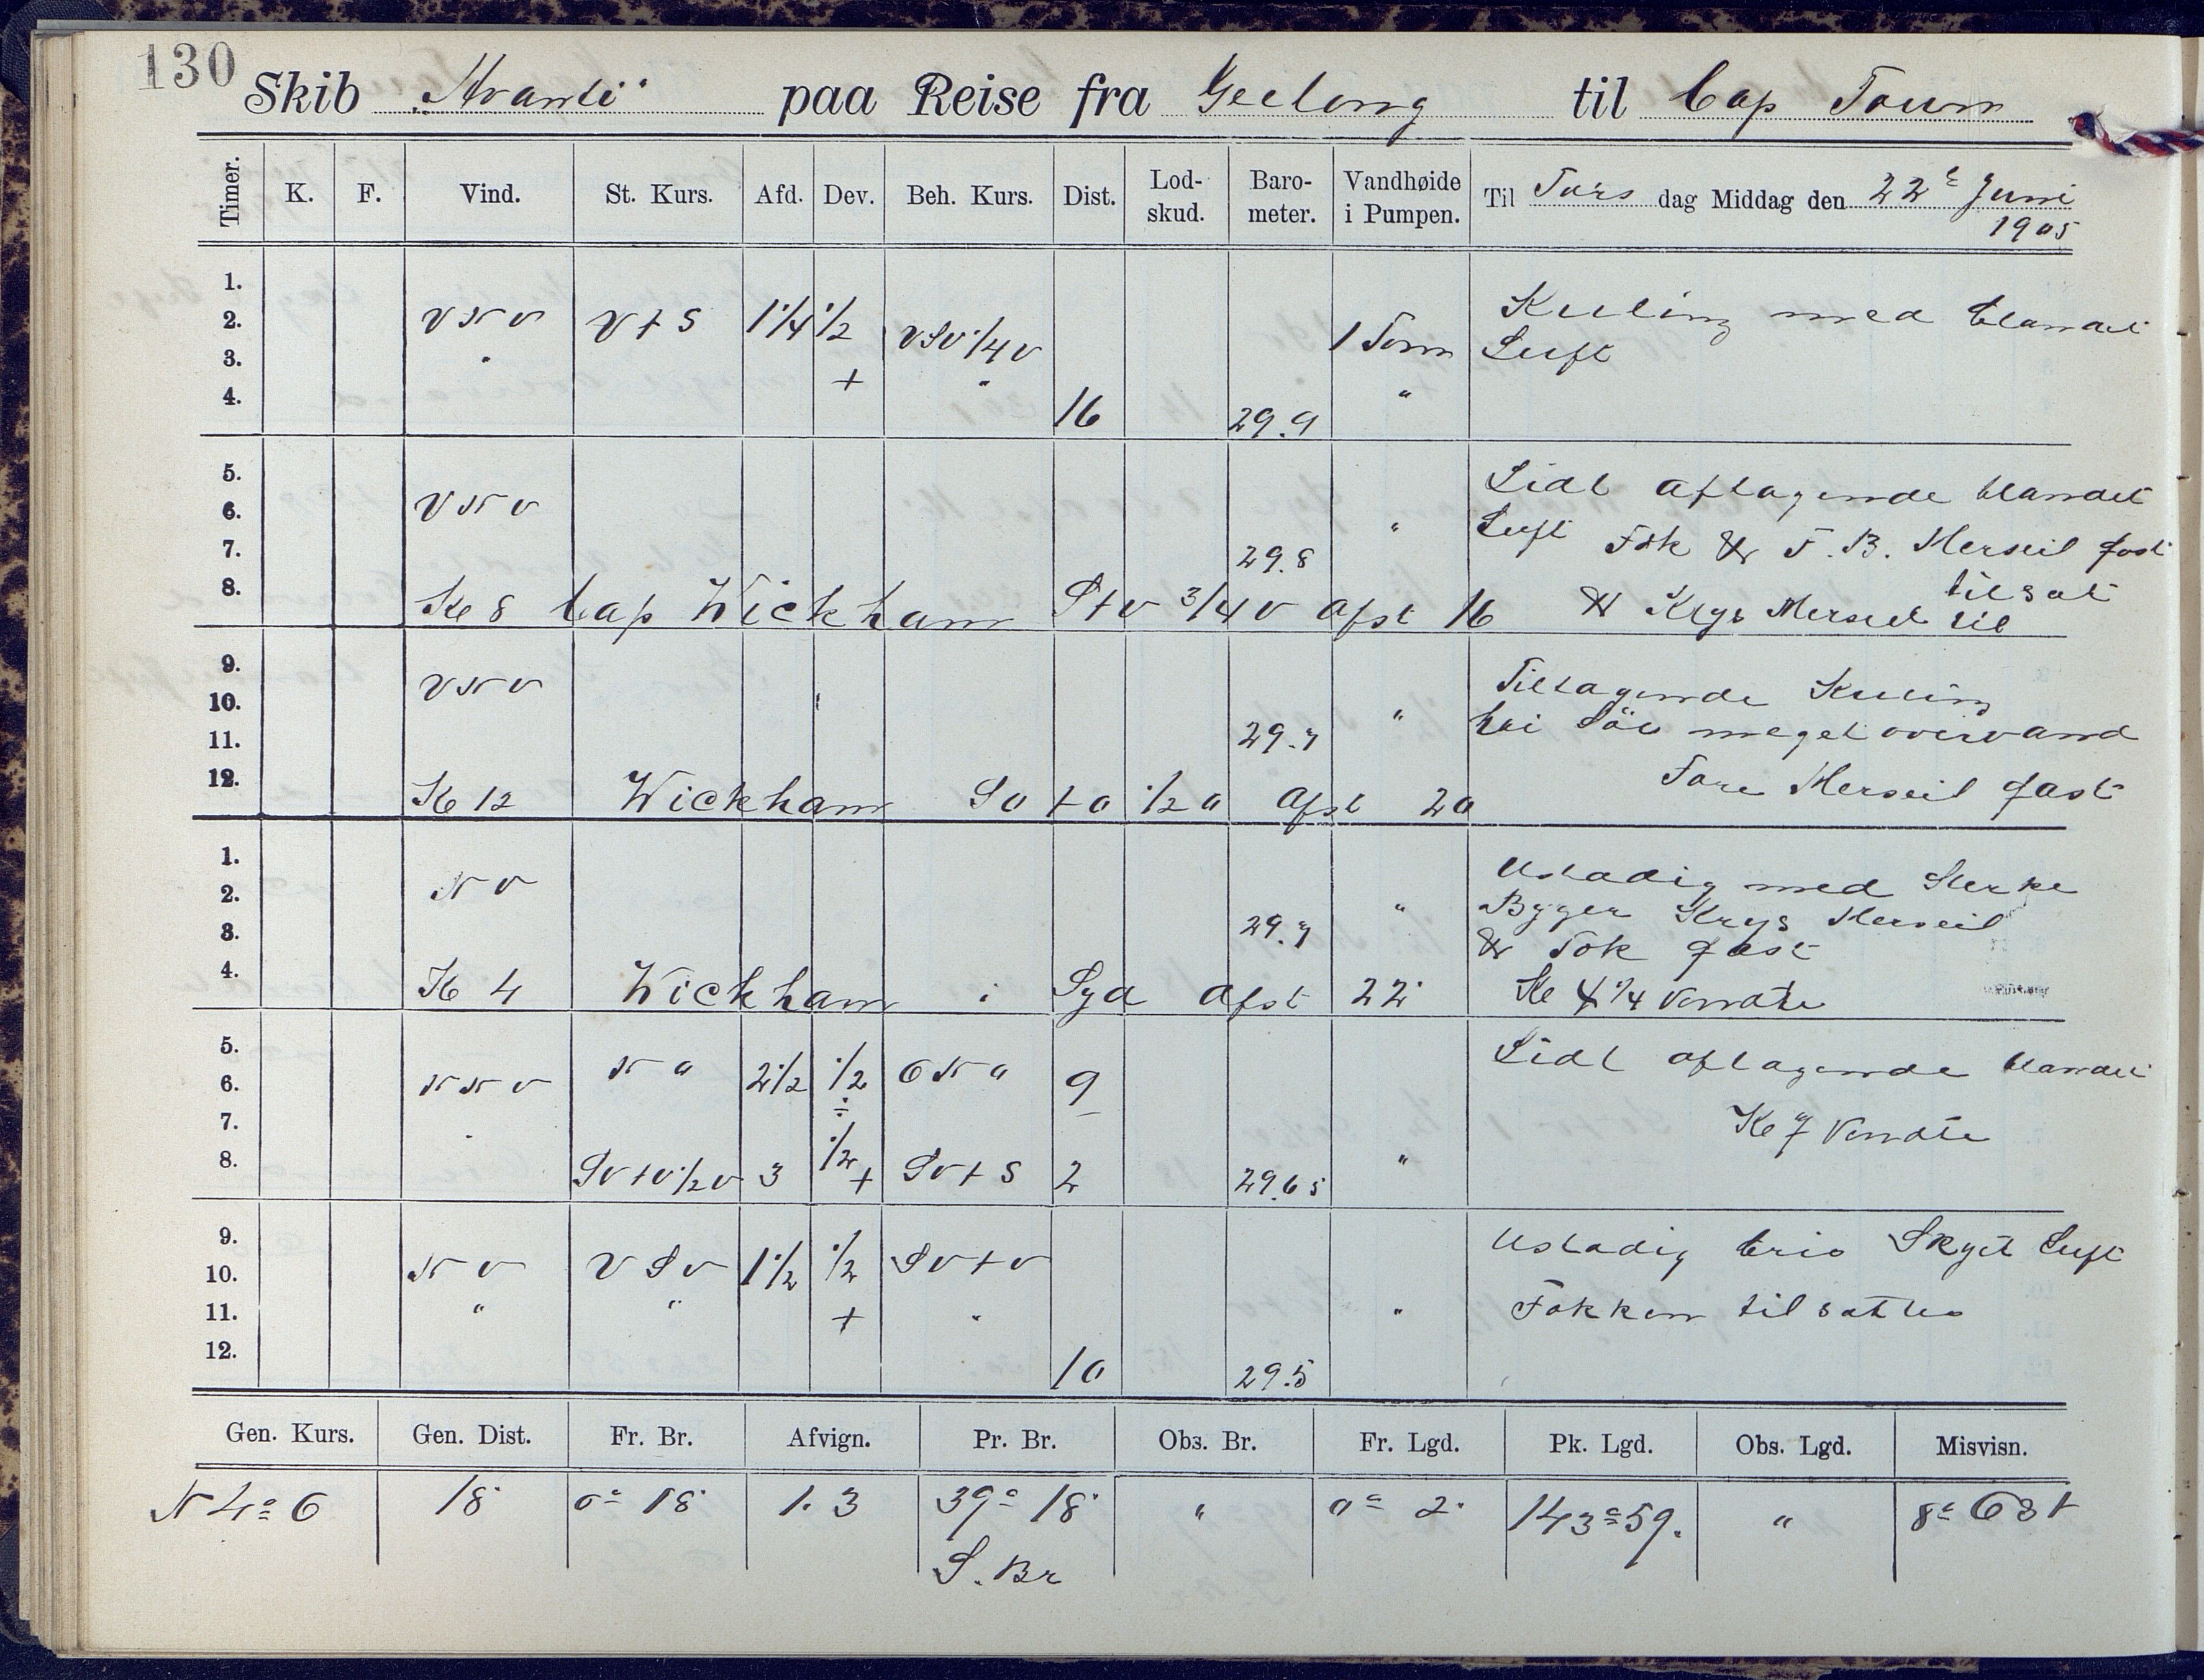 130
Skib "Avanti" paa Reise fra Geelong til Cap Town
Timer. K. F. Vind. St. Kurs. Afd. Dev. Beh. Kurs. Dist. Lod-skud. Baro-meter. Vandhøide i Pumpen. Til Tors dag Middag den 22de Juni 1905
1.
2. VNV V t S 1 1/4 1/2 VSV 1/4 V 1 Tom Kuling med blandet
3. " + " Luft
4. 16 29.9 "
5. Lidt aftagende blandet
6. VNV " Luft Fok & F. B. Merseil fast
7. 29.8 tilsat
8. Kl 8 Cap Wickham S t V 3/4 V afst 16 & Krys Merseil til
9. Tiltagende Kuling
10. VNV " høi Sö meget overvand
11. 29.7
12. Kl 12 Wickham SO t O 1/2 O afst 20 Fore Merseil fast
1. Ustadig med Sterke
2. NV " Byger Krys Merseil
3. 29.7 & Fok fast
4. Kl 4 Wickham i Syd afst 22 Kl 4 1/4 Vendte
5. Lidt aftagende blandet
6. NNV NO 2 1/2 1/2 ÷ ONO 9
7. " Kl 7 Vendte
8. SV t V 1/2 V 3 1/2 + SV t S 2 29.65 "
9. Ustadig bris Skyet Luft
10. NV VSV 1 1/2 1/2 SV t V
11. " " + " " Fokken tilsattes
12. 10 29.5
Gen. Kurs. Gen. Dist. Fr. Br. Afvign. Pr. Br. Obs. Br. Fr. Lgd. Pk. Lgd. Obs. Lgd. Misvisn.
N 4° O 18' 0° 18' 1.3 39° 18' " 0° 2' 143° 59' " 8° Ost
S. Br